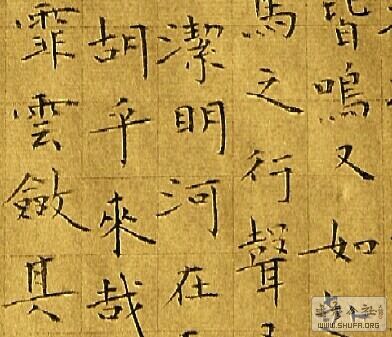 皆鳴又如
馬之行聲
潔明河在
胡乎來哉
霏雲斂其
WWW.SHUFA.ORG